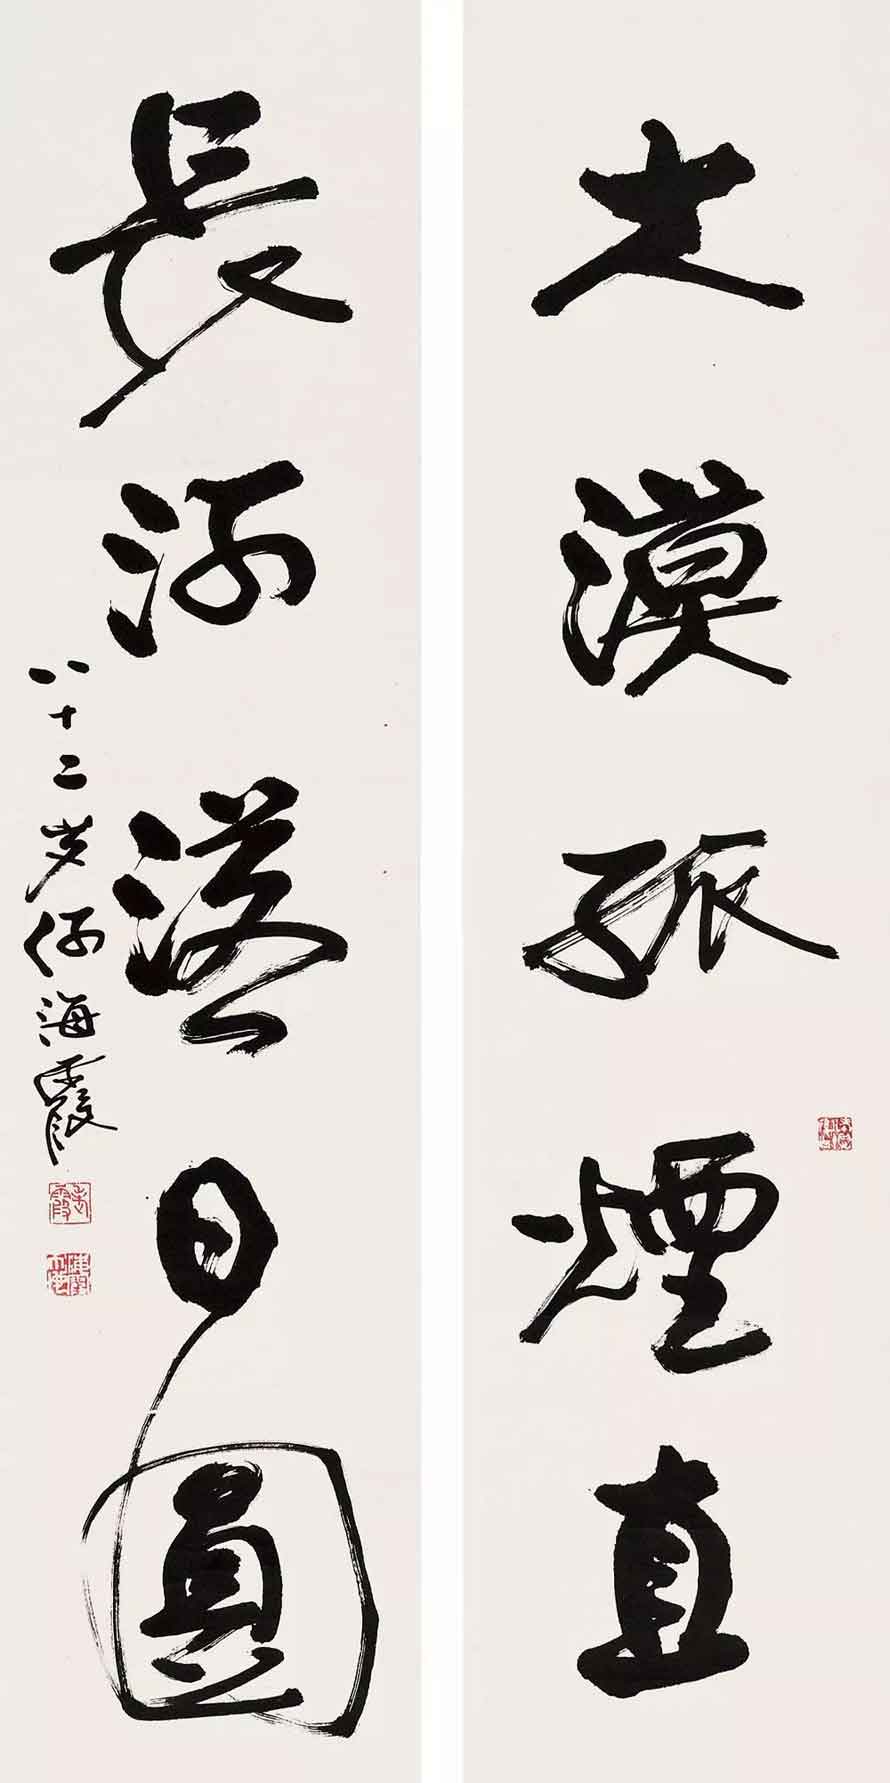 大漠孤煙直
長河落日圓
八十二岁何海霞